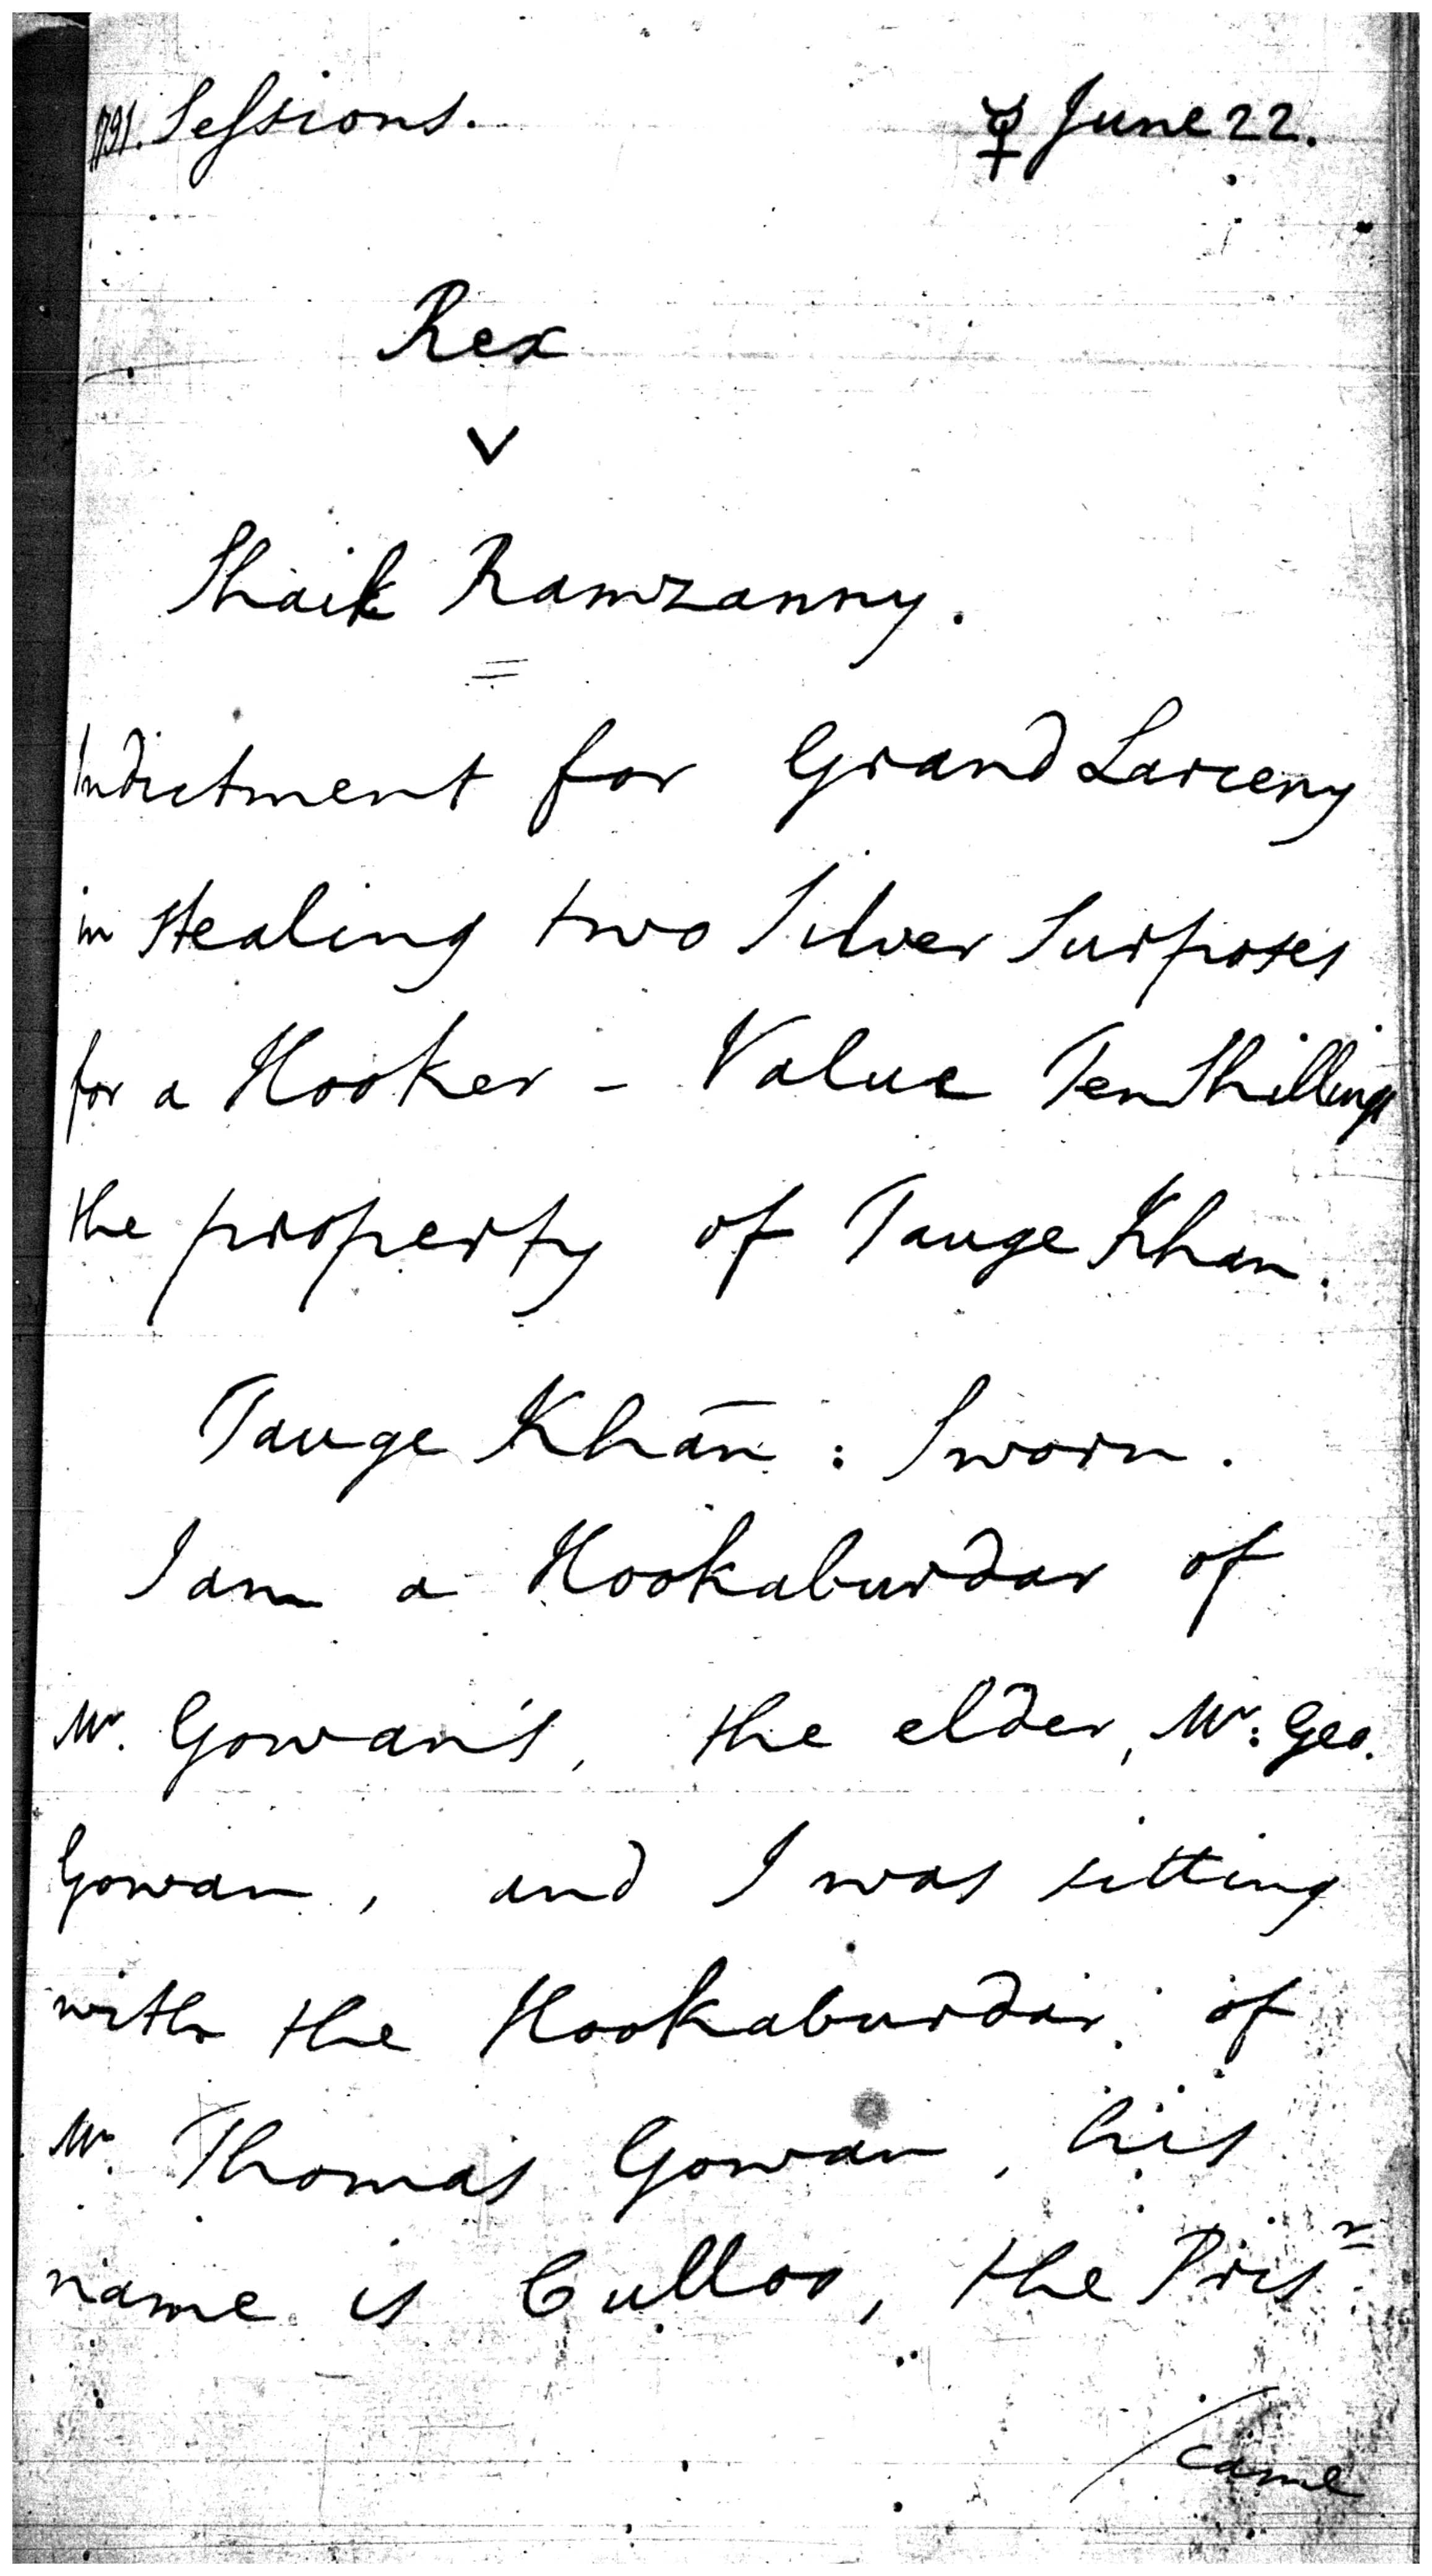 1791. Sessions. ☿ June 22.
Rex
v
Shaik Ramzanny.
Indictment for Grand Larceny
in stealing two Silver Surposes
for a Hooker - Value Ten Shillings
the property of Tauge Khan.
Tauge Khan : Sworn.
I am a Hookaburdar of
Mr. Gowan's, the elder, Mr: Geo.
Gowan, and I was sitting
with the Hookaburdar of
Mr. Thomas Gowan, his
name is Culloo, the Prisr.
/came